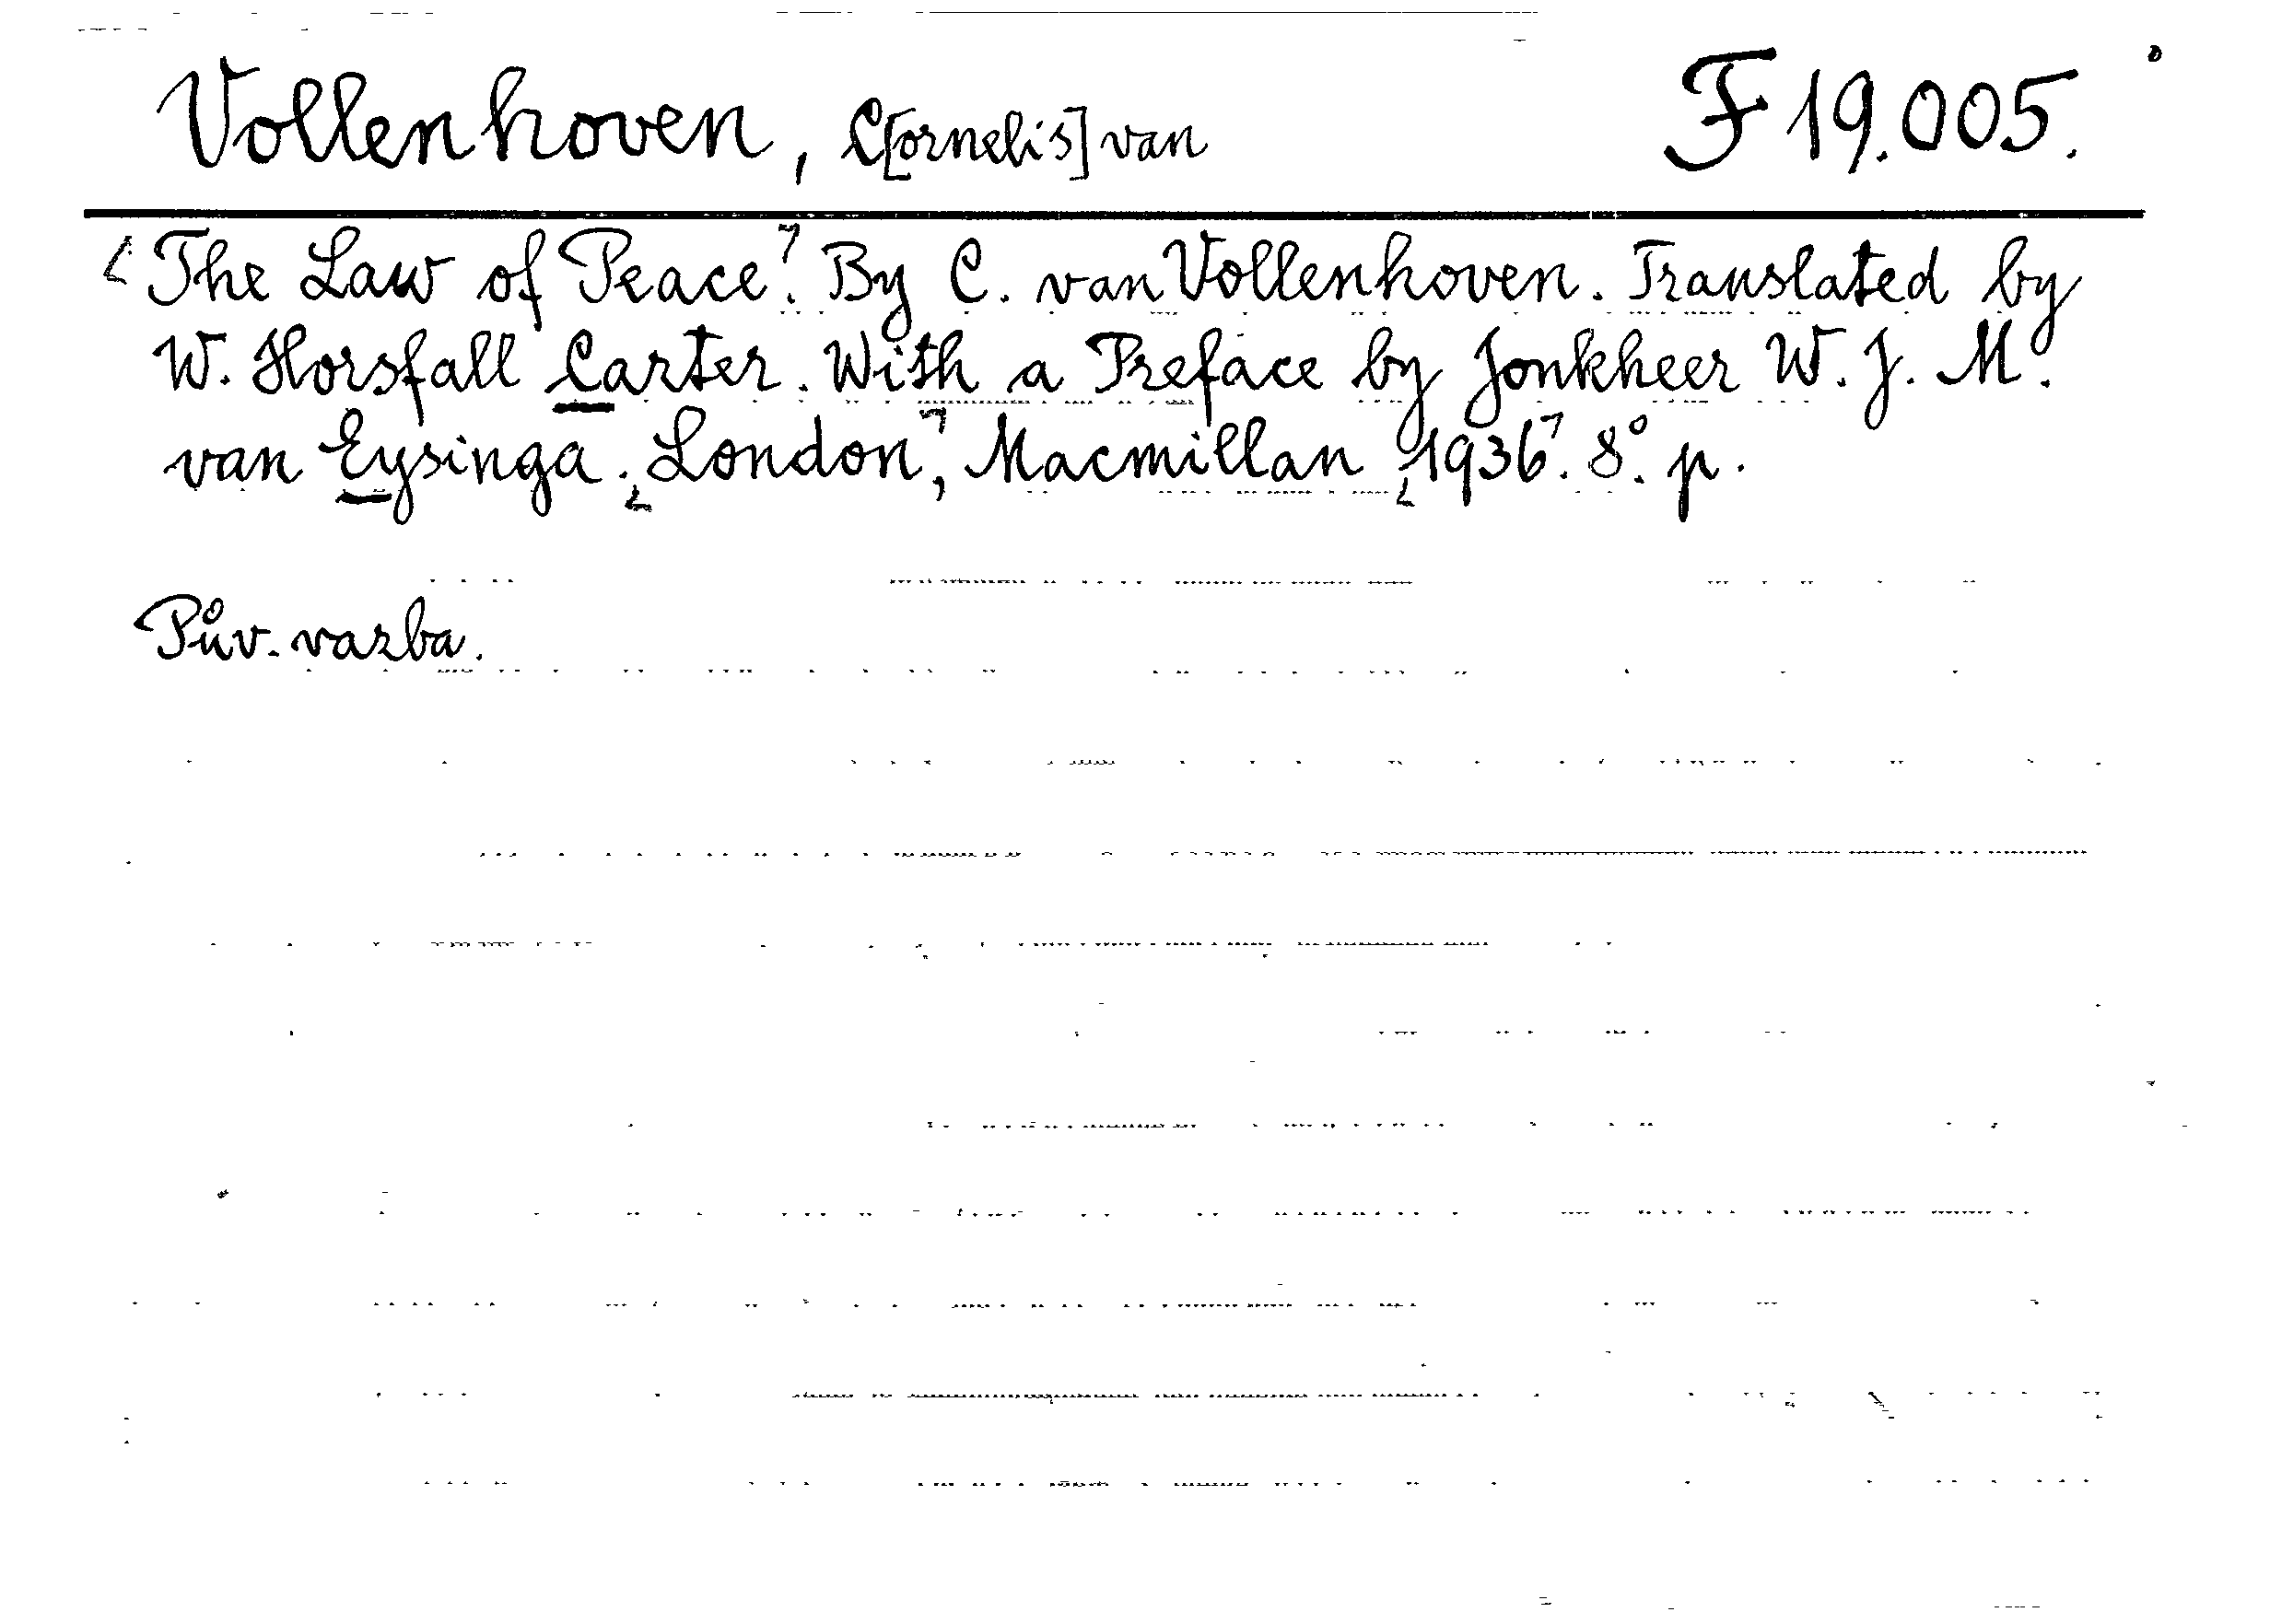 Vollenhoven, C[ornelis] van F 19.005.
The Law of Peace. By C. van Vollenhoven. Translated by
W. Horsfall Carter. With a Preface by Jonkheer W. J. M.
van Eysinga. London, Macmillan, 1936. 8°. p.
Pův. vazba.